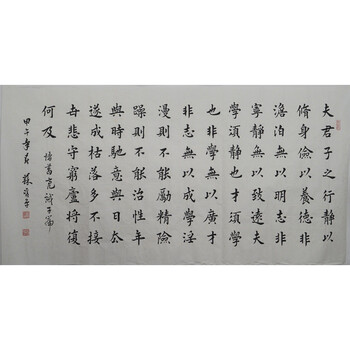 夫君子之行靜以
脩身儉以養德非
澹泊無以明志非
寧靜無以致遠夫
學須靜也才須學
也非學無以廣才
非志無以成學淫
漫則不能勵精險
躁則不能治性年
與時馳意與日去
遂成枯落多不接
世悲守窮廬將復
何及
諸葛亮誡子篇
甲午年春 蘇